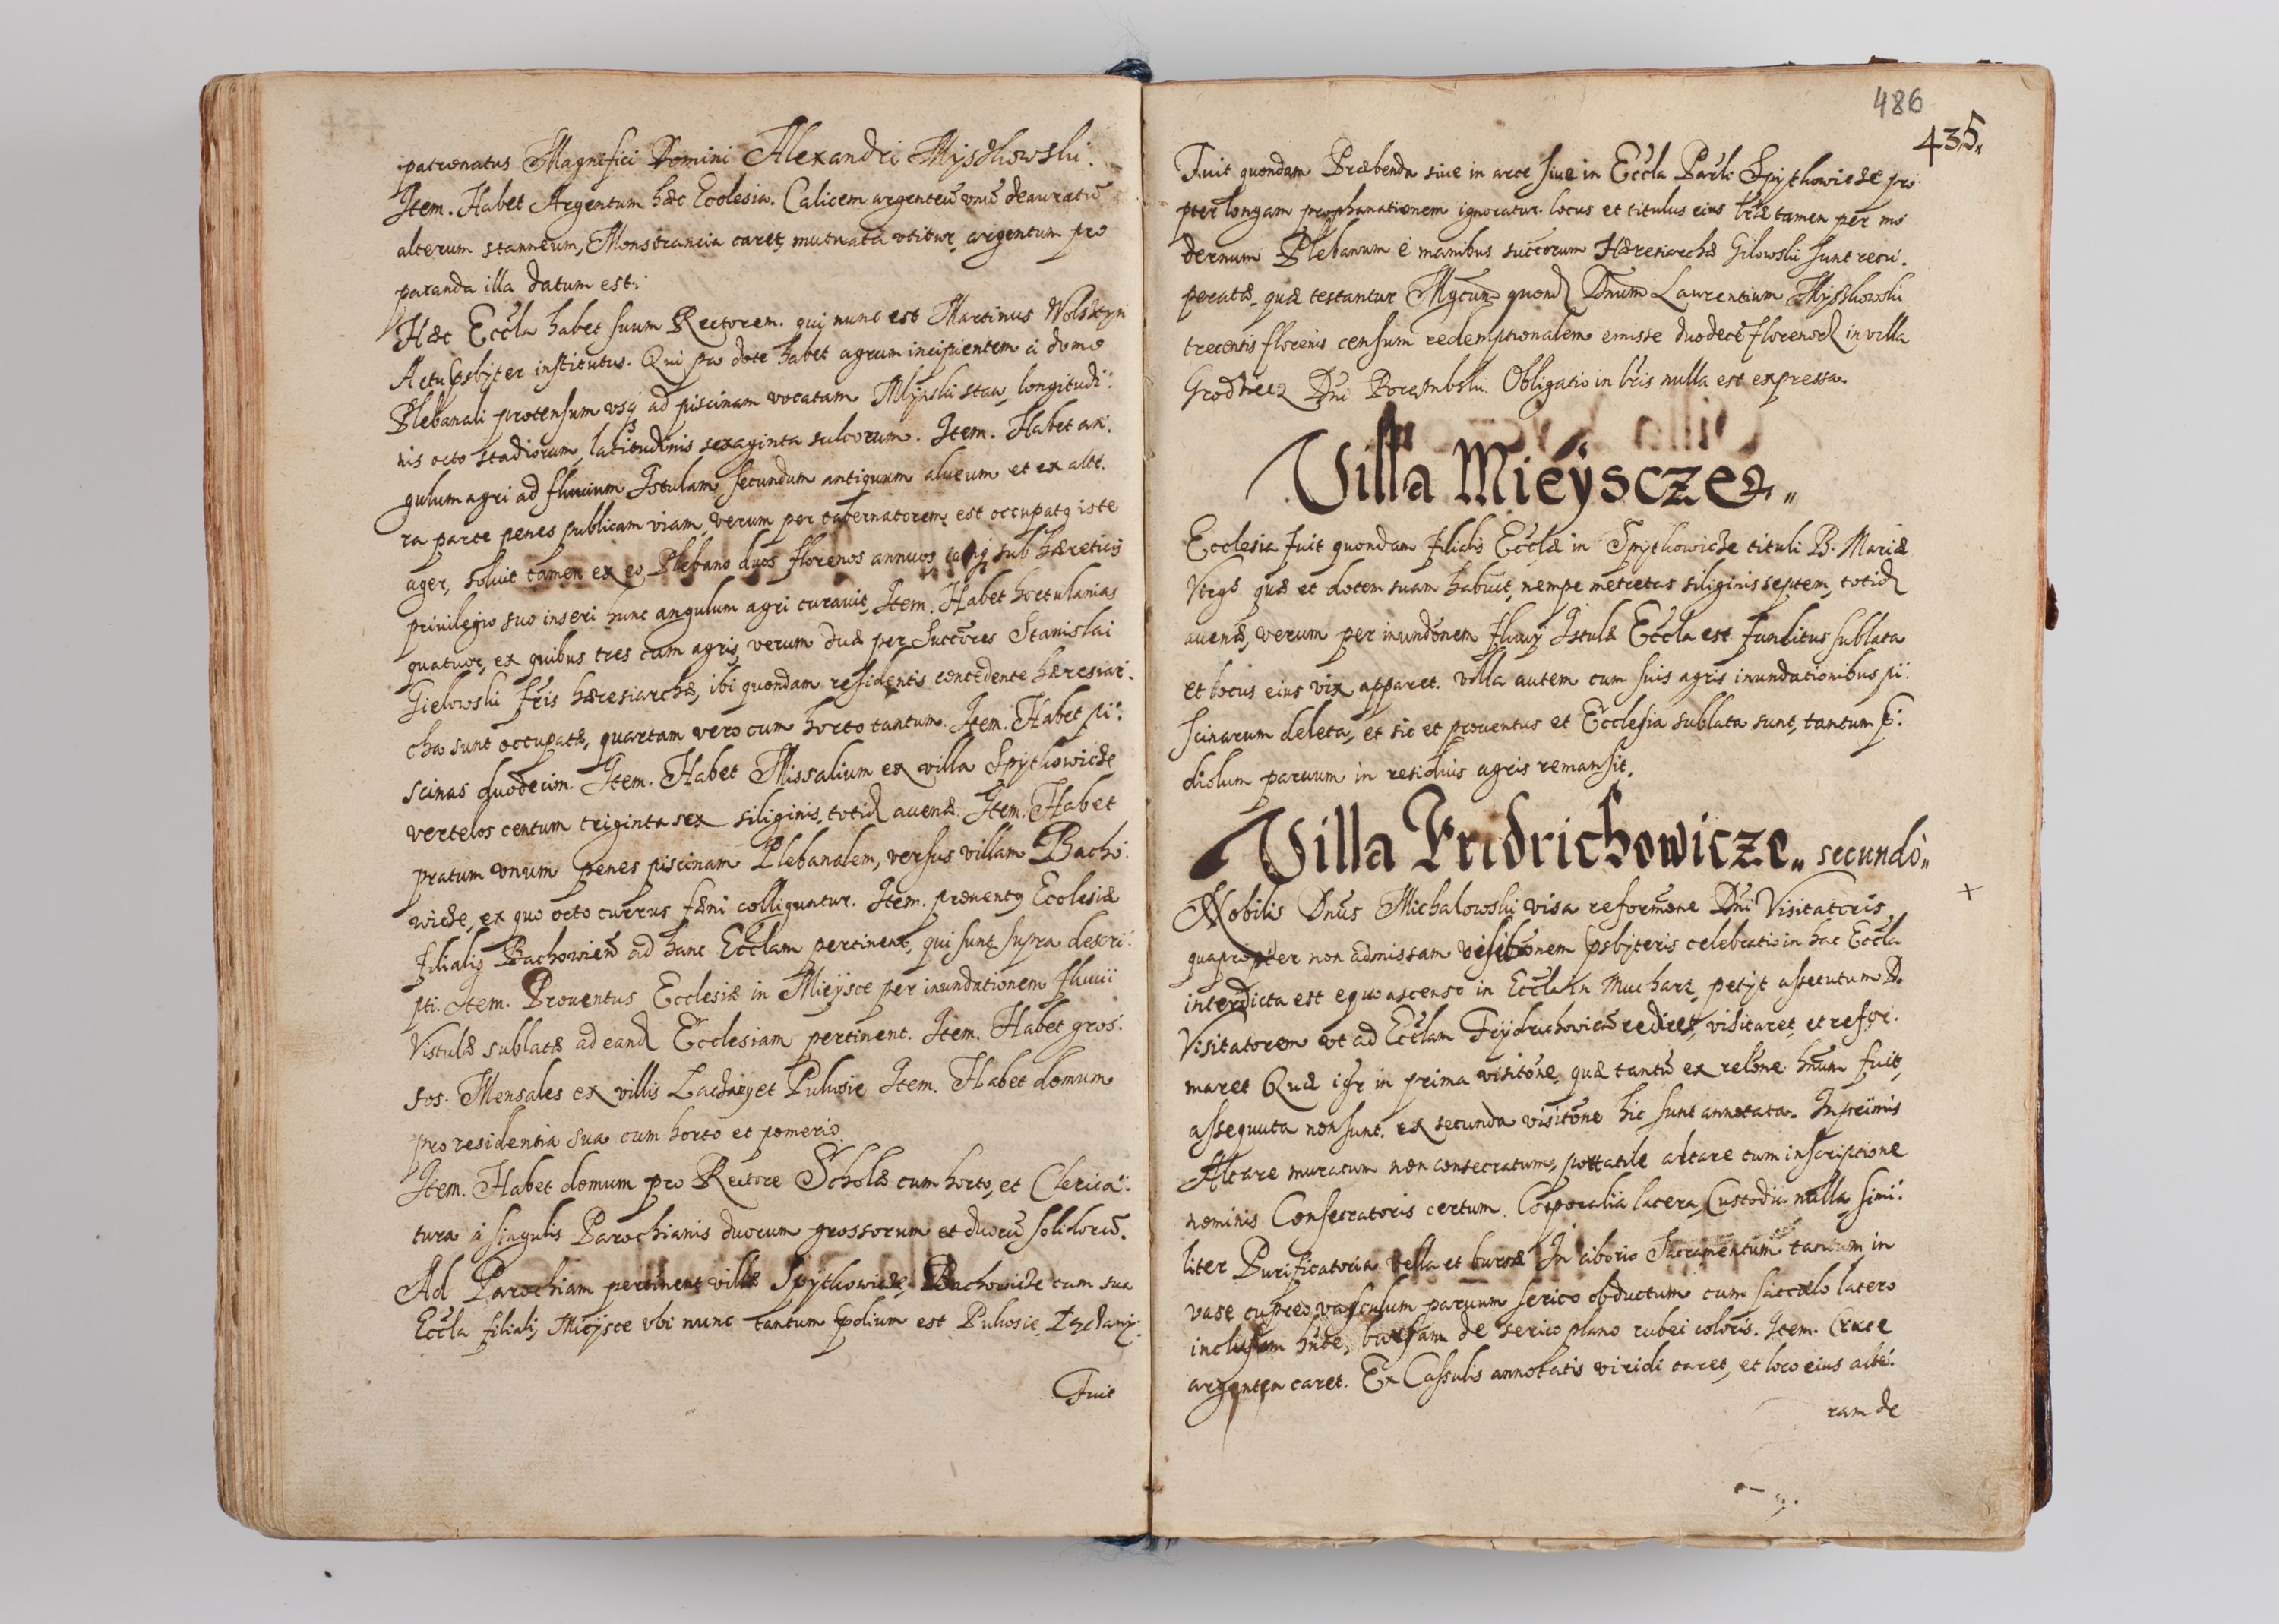 patronatus Magnifici Domini Alexandri Myszkowski.
Item. Habet Argentum hæc Ecclesia. Calicem argenteū vnū deauratū
alterum stanneum, Monstrancia caret, mutuata vtitur, argentum pro
paranda illa datum est:
Hæc Eccła habet suum Rectorem. qui nunc est Martinus Wolsztyn
Actu psbÿter institutus. Qui pro dote habet agrum incipientem à domo
Plebanali protensum vsq̨ ad piscinam vocatam Mlÿnski staw, longitudi:
nis octo stadiorum, latitudinis sexaginta sulcorum. Item. Habet an:
gulum agri ad fluuium Istulam secundum antiquum alueum et ex alte.
ra parte penes publicam viam, verum per tabernatorem est occupatq iste
ager, soluit tamen ex eo Plebano duos florenos annuos, sub hæreticis
priuilegio suo inseri hunc angulum agri curauit, Item. Habet hortulanias
quatuor, ex quibus tres cum agris, verum duæ per Succōres Stanislai
Gielowski fris hæresiarchæ, ibi quondam residentis concedente hæresiar:
cha sunt occupatæ, quartam vero cum horto tantum. Item. Habet pi:
scinas duodecim. Item. Habet Missalium ex villa Spÿtkowicze
vertelos centum triginta sex siliginis, totid auenæ. Item. Habet
pratum vnum penes piscinam Plebanalem, versus villam Bacho:
wicze, ex quo octo currus fæni colliguntur. Item. prouentq Ecclesiæ
filialis Bachowien̄ ad hanc Ecclam pertinent, qui sunt supra descri:
pti. Item. Prouentus Ecclesiæ in Mieÿsce per inundationem fluuii
Vistulæ sublatæ ad eand Ecclesiam pertinent. Item. Habet gros:
sos. Mensales ex villis Łączanÿ et Pulwsie Item. Habet domum
pro residentia sua cum horto et pomerio.
Item. Habet domum pro Rectore Scholæ cum horto, et Clerica:
tura à singulis Parochianis duorum grossorum et duorū solidorū.
Ad Parochiam pertinent villæ Spÿtkowicze, Bachowicze cum sua
Eccła filiali, Mieÿsce vbi nunc tantum p̄dium est Pulwsie Łączanÿ.
Fuit
486
435.
Fuit quondam Præbenda siue in arce siue in Eccła Parli Spÿtkowicze pro
pter longam prophanationem ignoratur locus et titulus eius lræ tamen per mo
dernum Plebanum è manibus succorum Hæresiarchæ Gilowski sunt recu:
peratæ, quæ testantur Mgcum quond Dnum Laurentium Myszkowski
trecentis florenis censum redemptionalem emisse duodecē florenor in villa
Grodziecz Dni Porembski. Obligatio in lris nulla est expressa.
Villa Mieÿscze.
Ecclesia fuit quondam filialis Ecclæ in Spÿtkowicze tituli B. Mariæ
Virgs quæ et dotem suam habuit, nempe metretas siliginis septem, totid
auenæ, verum per inundōnem fluuÿ Istulæ Eccła est funditus sublata
et locus eius vix apparet. villa autem cum suis agris inundationibus pi:
scinarum deleta, et sic et prouentus et Ecclesia sublata sunt, tantum p̄:
diolum paruum in residuis agris remansit.
Villa Fridrichowicze. secundò
Nobilis Dnūs Michalowski visa reformōne Dni Visitatoris
quapropter non admissam visitōnem psbÿteris celebratio in hac Eccła
interdicta est equo ascenso in Ecclam Mucharz, petÿt assecutum D.
Visitatorem vt ad Ecclam Frÿdrichowicen̄ rediret, visitaret, et refor.
maret Quæ igr in prima visitōne, quæ tantū ex relōne hnūm fuit,
assequuta non sunt. ex secunda visitōne hic sunt annotata. Inprimis
Altare muratum non consecratum, portatile altare cum inscriptione
nominis Consecratoris certum. Corporalia lacera, Custodia nulla, simi:
liter Purificatoria vella et bursæ In ciborio Sacramentum tantum in
vase cupreo, vasculum paruum serico obductum cum saccelo lacero
inclusum hnde, bursam de serico plano rubei coloris. Item. Cruce
argentea caret. Ex Cassulis annotatis viridi caret, et loco eius alte:
ram de